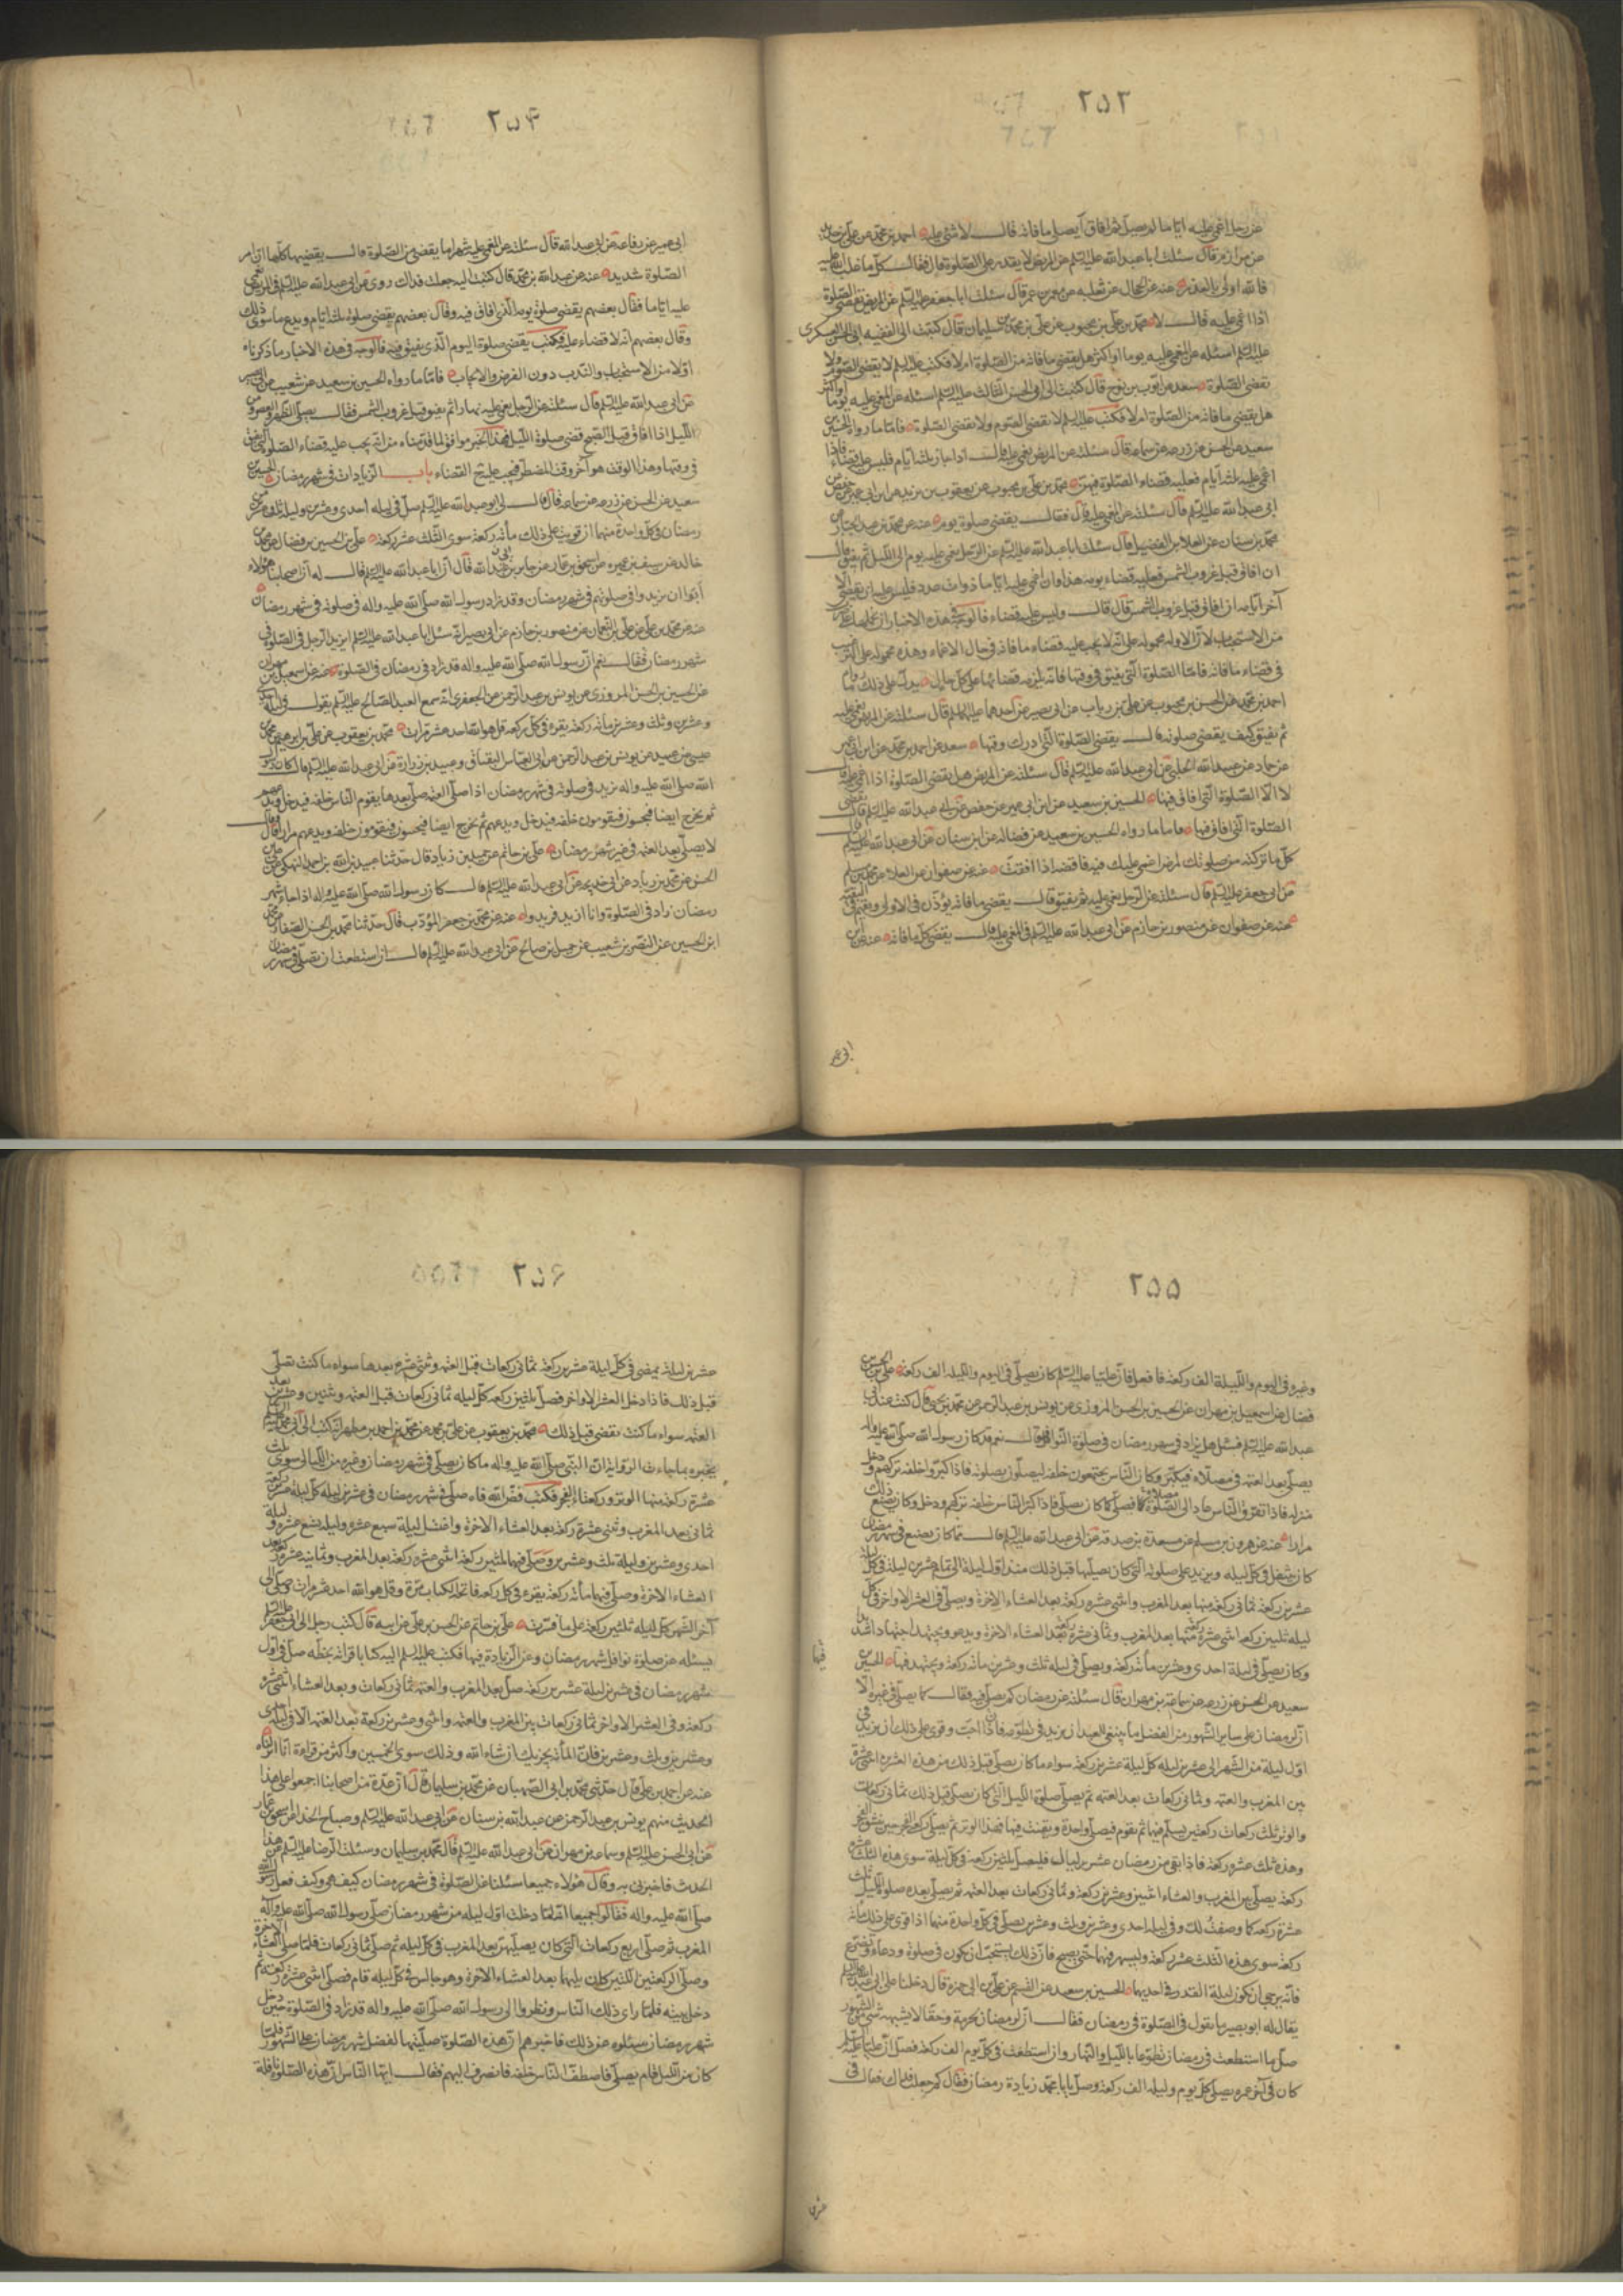 ۲۵۳
عن رجل اغمي عليه اياما لم يصل ثم افاق أيصلي ما فاته قال لا شئ عليه احمد بن محمد عن علي بن حديد
عن مرازم قال سئلت ابا عبد الله عليه السلم عن المريض لا يقدر على الصلوة قال فقال كل ما غلب الله عليه
فالله اولى بالعذر عنه عن الحجال عن ثعلبه عن معمر بن عمر قال سئلت ابا جعفر عليه السلم عن المريض يقضي الصلوة
اذا اغمي عليه قال لا محمد بن علي بن محبوب عن علي بن محمد بن سليمان قال كتبت الى الفقيه ابي الحسن العسكري
عليه السلم اسئله عن المغمى عليه يوما او اكثر هل يقضي ما فاته من الصلوة ام لا فكتب عليه السلم لا يقضي الصوم ولا
يقضي الصلوة سعد عن ايوب بن نوح قال كتبت الى ابي الحسن الثالث عليه السلم اسئله عن المغمى عليه يوما او اكثر
هل يقضي ما فاته من الصلوة ام لا فكتب لا يقضي الصوم ولا يقضي الصلوة فاما ما رواه الحسين بن
سعيد عن الحسن عن زرعه عن سماعه قال سئلته عن المريض يغمى عليه قال اذا جاز ثلثة ايام فليس عليه قضاء فاذا
اغمي عليه ثلثة ايام فعليه قضاء الصلوة فيهن محمد بن علي بن محبوب عن يعقوب بن يزيد عن ابن ابي عمير عن حفص عن
ابي عبد الله عليه السلم قال سئلته عن المغمى عليه قال فقال يقضي صلوة يوم عنه عن محمد بن عبد الجبار عن
محمد بن سنان عن العلاء بن الفضيل قال سئلت ابا عبد الله عليه السلم عن الرجل يغمى عليه يوم الى الليل ثم يفيق قال
ان افاق قبل غروب الشمس فعليه قضاء يومه هذا وان اغمي عليه اياما ذوات عدد فليس عليه ان يقضي الا
آخر ايامه ان افاق قبل غروب الشمس قال قال وليس عليه قضاء فالوجه في هذه الاخبار ان نحملها على ضرب
من الاستحباب لان الاوله محموله على انه لا يجب عليه قضاء ما فاته في حال الاغماء وهذه محموله على الترغيب
في قضاء ما فاته فاما الصلوة التي يفيق في وقتها فانه يلزمه قضائها على كل حال يدل على ذلك ما رواه
احمد بن محمد عن الحسن بن محبوب عن علي بن رياب عن ابي بصير عن احدهما عليهما السلم قال سئلته عن المريض يغمى عليه
ثم يفيق كيف يقضي صلوته قال يقضي الصلوة التي ادرك وقتها سعد عن احمد بن محمد عن ابن ابي عمير
عن حماد عن عبيد الله الحلبي عن ابي عبد الله عليه السلم قال سئلته عن المريض هل يقضي الصلوة اذا اغمي عليه قال
لا الا الصلوة التي افاق فيها الحسين بن سعيد عن ابن ابي عمير عن حفص عن ابي عبد الله عليه السلم قال يقضي
الصلوة التي افاق فيها فاما ما رواه الحسين بن سعيد عن فضاله عن ابن سنان عن ابي عبد الله عليه السلم قال
كل ما تركته من صلوتك لمرض اغمي عليك فيه فاقضه اذا افقت عنه عن صفوان عن العلاء عن محمد بن مسلم
عن ابي جعفر عليه السلم قال سئلته عن الرجل يغمى عليه ثم يفيق قال يقضي ما فاته يؤذن في الاولى ويقيم في البقية
عنه عن صفوان عن منصور بن حازم عن ابي عبد الله عليه السلم في المغمى عليه قال يقضي كل ما فاته عنه عن ابن
ابي عمير
۲۵۴
ابي عمير عن رفاعة عن ابي عبد الله قال سئلته عن المغمى عليه شهرا ما يقضي من الصلوة قال يقضيها كلها ان امر
الصلوة شديد عنه عن عبد الله بن محمد قال كتبت اليه جعلت فداك روي عن ابي عبد الله عليه السلم في المريض يغمى
عليه اياما فقال بعضهم يقضي صلوة يومه الذي افاق فيه وقال بعضهم يقضي صلوة ثلثة ايام ويدع ما سوى ذلك
وقال بعضهم انه لا قضاء عليه فكتب يقضي صلوة اليوم الذي يفيق فيه فالوجه في هذه الاخبار ما ذكرناه
اولا من الاستحباب والندب دون الفرض والايجاب فاما ما رواه الحسين بن سعيد عن شعيب عن ابي بصير
عن ابي عبد الله عليه السلم قال سئلته عن الرجل يغمى عليه نهارا ثم يفيق قبل غروب الشمس فقال يصلي الظهر والعصر ومن
الليل اذا افاق قبل الصبح قضى صلوة الليل فهذا الخبر موافق لما قدمناه من انه يجب عليه قضاء الصلوة التي يفيق
في وقتها وهذا الوقت هو آخر وقت المضطر فيجب عليه القضاء باب الزيادات في شهر رمضان الحسين بن
سعيد عن الحسن عن زرعه عن سماعه قال قال لي ابو عبد الله عليه السلم صل في ليله احدى وعشرين وليلة ثلث وعشرين من
رمضان في كل واحدة منهما ان قويت على ذلك مأة ركعة سوى الثلث عشر ركعة علي بن الحسين بن فضال عن محمد بن
خالد عن سيف بن عميره عن اسحق بن عمار عن جابر بن عبد الله قال ان ابا عبد الله عليه السلم قال له ان اصحابنا هؤلاء
أبوا ان يزيدوا في صلوتهم في شهر رمضان وقد زاد رسول الله صلى الله عليه واله في صلوته في شهر رمضان
عنه عن محمد بن علي عن علي بن النعمان عن منصور بن حازم عن ابي بصير انه سئل ابا عبد الله عليه السلم ايزيد الرجل في الصلوة في
شهر رمضان فقال نعم ان رسول الله صلى الله عليه واله قد زاد في رمضان في الصلوة عنه عن اسمعيل بن مهران
عن الحسين بن الحسن المروزي عن يونس بن عبد الرحمن عن الجعفري انه سمع العبد الصالح عليه السلم يقول في ليلة احدى
وعشرين وثلث وعشرين مأة ركعة يقرء في كل ركعة قل هو الله احد عشر مرات محمد بن يعقوب عن علي بن ابرهيم عن محمد بن
عيسى بن عبيد عن يونس بن عبد الرحمن عن ابي العباس البقباق وعبيد بن زرارة عن ابي عبد الله عليه السلم قال كان رسول
الله صلى الله عليه واله يزيد في صلوته في شهر رمضان اذا صلى العتمه صلى بعدها يقوم الناس خلفه فيدخل ويدعهم
ثم يخرج ايضا فيجيئون فيقومون خلفه فيدخل ويدعهم ثم يخرج ايضا فيجيئون فيقومون خلفه ويدعهم مرارا قال وقال
لا يصلى بعد العتمه في غير شهر رمضان علي بن حاتم عن حميد بن زياد قال حدثنا عبيد الله بن احمد النهيكي عن علي بن
الحسن عن محمد بن زياد عن ابي خديجه عن ابي عبد الله عليه السلم قال كان رسول الله صلى الله عليه واله اذا جاء شهر
رمضان زاد في الصلوة وانا ازيد فزيدوا عنه عن محمد بن جعفر المؤدب قال حدثنا محمد بن الحسن الصفار عن محمد
ابن الحسين عن النضر بن شعيب عن جميل بن صالح عن ابي عبد الله عليه السلم قال ان استطعت ان تصلي في شهر رمضان
۲۵۵
وغيره في اليوم والليلة الف ركعة فافعل فان عليا عليه السلم كان يصلي في اليوم والليله الف ركعة علي بن الحسن بن
فضال عن اسمعيل بن مهران عن الحسين بن الحسن المروزي عن يونس بن عبد الرحمن عن محمد بن يحيى قال كنت عند ابي
عبد الله عليه السلم فسئل هل يزاد في شهر رمضان في صلوة النوافل فقال نعم قد كان رسول الله صلى الله عليه واله
يصلي بعد العتمه في مصلاه فيكثر وكان الناس يجتمعون خلفه ليصلوا بصلوته فاذا كثروا خلفه تركهم ودخل
منزله فاذا تفرق الناس عاد الى مصلاه فصلى كما كان يصلي فاذا كثر الناس خلفه تركهم ودخل وكان يصنع ذلك
مرارا عنه عن هرون بن مسلم عن مسعدة بن صدقه عن ابي عبد الله عليه السلم قال مما كان يصنع في شهر رمضان
كان يتنفل في كل ليله ويزيد على صلوته التي كان يصليها قبل ذلك منذ اول ليلة الى تمام عشرين ليلة في كل ليلة
عشرين ركعة ثماني ركعة منها بعد المغرب واثني عشره ركعة بعد العشاء الاخرة ويصلي في العشر الاواخر في كل
ليله ثلثين ركعه اثني عشرة ركعة منها بعد المغرب وثماني عشره ركعة بعد العشاء الاخرة ويدعو ويجتهد اجتهادا شديدا
وكان يصلي في ليلة احدى وعشرين مأة ركعة ويصلي في ليله ثلث وعشرين مأة ركعة ويجتهد فيها الحسين بن
فيها
سعيد عن الحسن عن زرعه عن سماعة بن مهران قال سئلته عن رمضان كم يصلى فيه فقال كما يصلى في غيره الا
ان لرمضان على ساير الشهور من الفضل ما ينبغي للعبد ان يزيد في تطوعه فان احب وقوي على ذلك ان يزيد في
اول ليلة من الشهر الى عشرين ليله كل ليلة عشرين ركعة سواء ما كان يصلي قبل ذلك من هذه العشرين اثنتي عشرة
بين المغرب والعتمه وثماني ركعات بعد العتمه ثم يصلي صلوة الليل التي كان يصلي قبل ذلك ثماني ركعات
والوتر ثلث ركعات ركعتين يسلم فيهما ثم يقوم فيصلي واحدة ويقنت فيها فهذا الوتر ثم يصلي ركعتي الفجر حين ينشق الفجر
وهذه ثلث عشره ركعة فاذا بقي من رمضان عشر ليال فليصل ثلثين ركعة في كل ليلة سوى هذه الثلث عشرة
ركعة يصلي بين المغرب والعشاء اثنتين وعشرين ركعة وثماني ركعات بعد العتمه ثم يصلي بعد صلوة الليل ثلث
عشرة ركعه كما وصفت لك وفي ليله احدى وعشرين وثلث وعشرين يصلي في كل واحدة منهما اذا قوي على ذلك مأة
ركعة سوى هذه الثلث عشر ركعة وليسهر فيهما حتى يصبح فان ذلك يستحب ان يكون في صلوة ودعاء وتضرع
فانه يرجى ان تكون ليلة القدر في احديهما الحسين بن سعيد عن القسم عن علي بن ابي حمزة قال دخلنا على ابي عبد الله عليه السلم
فقال له ابو بصير ما تقول في الصلوة في رمضان فقال ان لرمضان لحرمة وحقا لا يشبهه شئ من الشهور
صل ما استطعت في رمضان تطوعا بالليل والنهار وان استطعت في كل يوم الف ركعة فصل ان عليا عليه السلم
كان في آخر عمره يصلي كل يوم وليله الف ركعة وصل يا با محمد زيادة رمضان فقال كم جعلت فداك فقال في
عشرين
۲۵۶
عشرين ليلة يمضي في كل ليلة عشرين ركعة ثماني ركعات قبل العتمه وثنتي عشرة بعدها سواء ما كنت تصلي
قبل ذلك فاذا دخل العشر الاواخر فصل ثلثين ركعة كل ليله ثماني ركعات قبل العتمه وثنتين وعشرين بعد
العتمه سواء ما كنت تقضي قبل ذلك محمد بن يعقوب عن علي بن محمد عن محمد بن احمد بن مطهر انه كتب الى ابي محمد عليه السلم
يخبره بما جاءت الرواية ان النبي صلى الله عليه واله ما كان يصلي في شهر رمضان وغيره من الليالي سوى ثلث
عشرة ركعة منها الوتر وركعتا الفجر فكتب فض الله فاه صلى في شهر رمضان في عشرين ليلة كل ليلة عشرين ركعة
ثماني بعد المغرب وثنتي عشرة ركعة بعد العشاء الاخرة واغتسل ليلة سبع عشره وليله تسع عشره وليلة
احدى وعشرين وليلة ثلث وعشرين وصلى فيهما ثلثين ركعة اثنتي عشره ركعة بعد المغرب وثمانيه عشره بعد
العشاء الاخرة وصلى فيهما مأة ركعة يقرء في كل ركعة فاتحة الكتاب مرة وقل هو الله احد عشر مرات وصلى الى
آخر الشهر كل ليله ثلثين ركعة على ما فسرت علي بن حاتم عن الحسن بن علي عن ابيه قال كتب رجل الى ابي جعفر عليه السلم
يسئله عن صلوة نوافل شهر رمضان وعن الزيادة فيها فكتب عليه السلم اليه كتابا قراته بخطه صل في اول
شهر رمضان في عشرين ليلة عشرين ركعة صل بعد المغرب والعتمه ثماني ركعات وبعد العشاء اثنتي عشره
ركعة وفي العشر الاواخر ثماني ركعات بين المغرب والعتمه واثنتي وعشرين ركعة بعد العتمه الا في ليله احدى
وعشرين وثلث وعشرين فان المأة تجزيك ان شاء الله وذلك سوى الخمسين واكثر من قراءة انا انزلناه
عنه عن احمد بن علي قال حدثني محمد بن ابي الصهبان عن محمد بن سليمان قال ان عدة من اصحابنا اجمعوا على هذا
الحديث منهم يونس بن عبد الرحمن عن عبد الله بن سنان عن ابي عبد الله عليه السلم وصباح الحذاء عن اسحق بن عمار
عن ابي الحسن عليه السلم وسماعه بن مهران عن ابي عبد الله عليه السلم قال محمد بن سليمان وسئلت الرضا عليه السلم عن هذا
الحديث فاخبرني به وقال هؤلاء جميعا سئلنا عن الصلوة في شهر رمضان كيف هي وكيف فعل رسول الله
صلى الله عليه واله فقالوا جميعا انه لما دخلت اول ليله من شهر رمضان صلى رسول الله صلى الله عليه وآله
المغرب ثم صلى اربع ركعات التي كان يصليهن بعد المغرب في كل ليله ثم صلى ثماني ركعات فلما صلى العشاء الاخرة
وصلى الركعتين اللتين كان يصليهما بعد العشاء الاخرة وهو جالس في كل ليله قام فصلى اثنتي عشرة ركعة ثم
دخل بيته فلما راى ذلك الناس ونظروا الى رسول الله صلى الله عليه واله قد زاد في الصلوة حين دخل
شهر رمضان سئلوه عن ذلك فاخبرهم ان هذه الصلوة صليتها لفضل شهر رمضان على الشهور فلما
كان من الليل قام يصلي فاصطف الناس خلفه فانصرف اليهم فقال ايها الناس ان هذه الصلوة نافلة